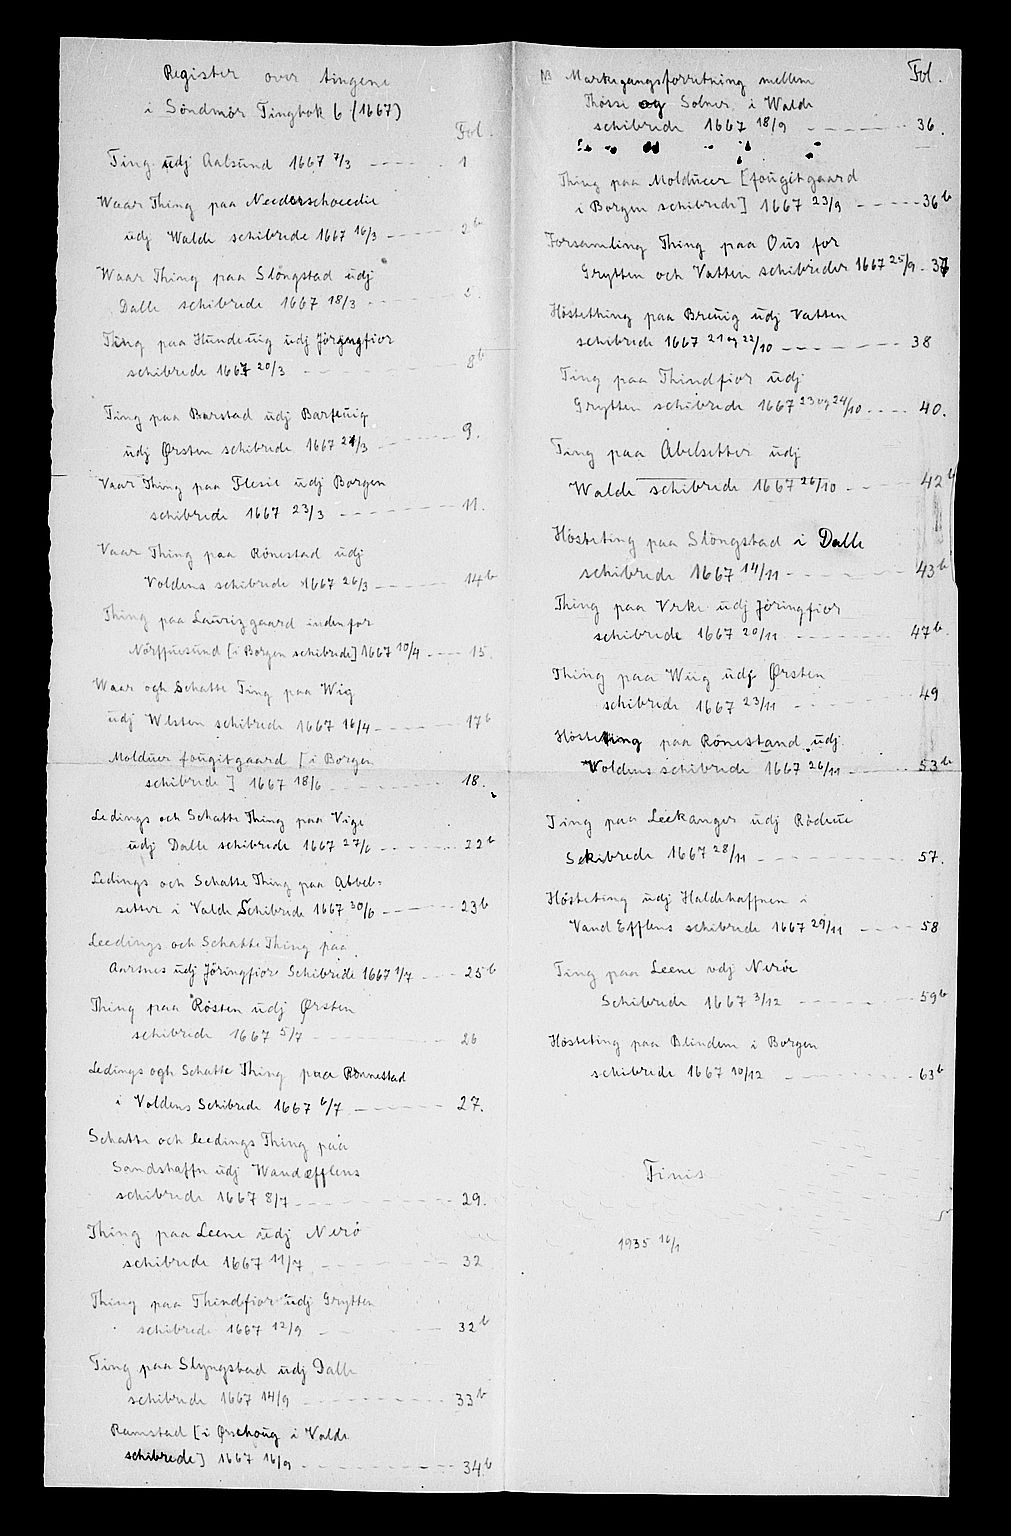 Register over tingene
i Söndmör Tingbok 6 (1667)
Fol.
Ting udj Aalsund 1667 7/3 - - - - 1
Waar Thing paa Nederschoedie
udj Walde schibrede 1667 16/3 - - - - 2b
Waar Thing paa Slöngstad udj
Dalle schibrede 1667 18/3 - - - - 5.
Thing paa Hundeuig udj Jöringfior
schibrede 1667 20/3 - - - - 8b
Ting paa Barstad udj Barfeuig
udj Ørsten schibrede 1667 21/3 - - - - 9.
Vaar Thing paa Flesie udj Borgen
schibrede 1667 23/3 - - - - 11.
Vaar Thing paa Rönestad udj
Voldens schibrede 1667 26/3 - - - - 14b
Thing paa Laurizgaard indenfor
Nörffuesund [i Borgen schibrede] 1667 10/4 - - - - 15.
Waar ogh Schatte Ting paa Wig
udj Wlsten schibrede 1667 16/4 - - - - 17b
Molduer fougitgaard [i Borgen
schibrede] 1667 18/6 - - - - 18.
Ledings och Schatte Thing paa Vige
udj Dalle schibrede 1667 27/6 - - - - 22b
Ledings och Schatte Thing paa Abbel=
setter i Valde Schibrede 1667 30/6 - - - - 23b
Leedings och Schatte Thing paa
Aarsnes udj Jöringfior Schibrede 1667 1/7 - - - - 25b
Thing paa Rösten udj Ørsten
schibrede 1667 5/7 - - - - 26
Ledings ogh Schatte Thing paa Rönnestad
i Voldens Schibrede 1667 6/7 - - - - 27.
Schatte och leedings Thing paa
Sandshaffn udj Wandefflens
schibrede 1667 8/7 - - - - 29.
Thing paa Leene udj Nerö
schibrede 1667 11/7 - - - - 32
Thing paa Thindefior udj Grytten
schibrede 1667 12/9 - - - - 32b
Ting paa Slyngstad udj Dalle
schibrede 1667 14/9 - - - - 33b
Ramstad [i Ørschoug i Valde
schibrede] 1667 16/9 - - - - 34b
Fol.
NB Markegangsforretning mellem
Thösse og Solnes i Walde
schibrede 1667 18/9 - - - - 36.
Thing paa Molduer [fougitgaard
i Borgen schibrede] 1667 23/9 - - - - 36b
Forsamling Thing paa Ous for
Grytten och Vatten schibreder 1667 25/9 - 37
Höstething paa Breuig udj Vatten
schibrede 1667 21 og 22/10 - - - - 38
Ting paa Thindfior udj
Grytten schibrede 1667 23 og 24/10 - - - - 40.
Ting paa Abelsetter udj
Walde schibrede 1667 26/10 - - - - 42b
Hösteting paa Slöngstad i Dalle
schibrede 1667 14/11 - - - - 43b
Thing paa Vrke udj Jöringfior
schibrede 1667 20/11 - - - - 47b.
Thing paa Wiig udj Ørsten
schibrede 1667 23/11 - - - - 49
Hösteting paa Rönestand udj
Voldens schibrede 1667 26/11 - - - - 53b
Ting paa Leekanger udj Rödeue
Schibrede 1667 28/11 - - - - 57.
Hösteting udj Haldehaffnen i
Vand Efflens schibrede 1667 29/11 - - - - 58
Ting paa Leene vdj Neröe
Schibrede 1667 3/12 - - - - 59b
Hösteting paa Blindem i Borgen
schibrede 1667 10/12 - - - - 63b
Finis
1935 16/1